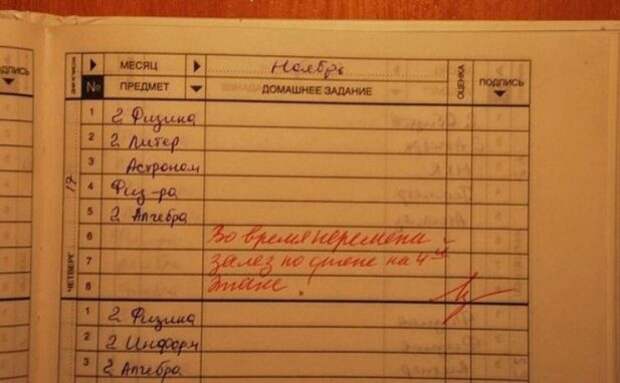 ДПИСЬ
МЕСЯЦ Ноябрь
№ ПРЕДМЕТ ДОМАШНЕЕ ЗАДАНИЕ ОЦЕНКА ПОДПИСЬ
1 2 Физика
2 2 Литер
3 Астроном
4 Физ-ра
5 2 Алгебра
6 Во время перемены
7 залез по стене на 4-ый
8 этаж
ЧЕТВЕРГ 17
1 2 Физика
2 2 Информ
3 2 Алгебра